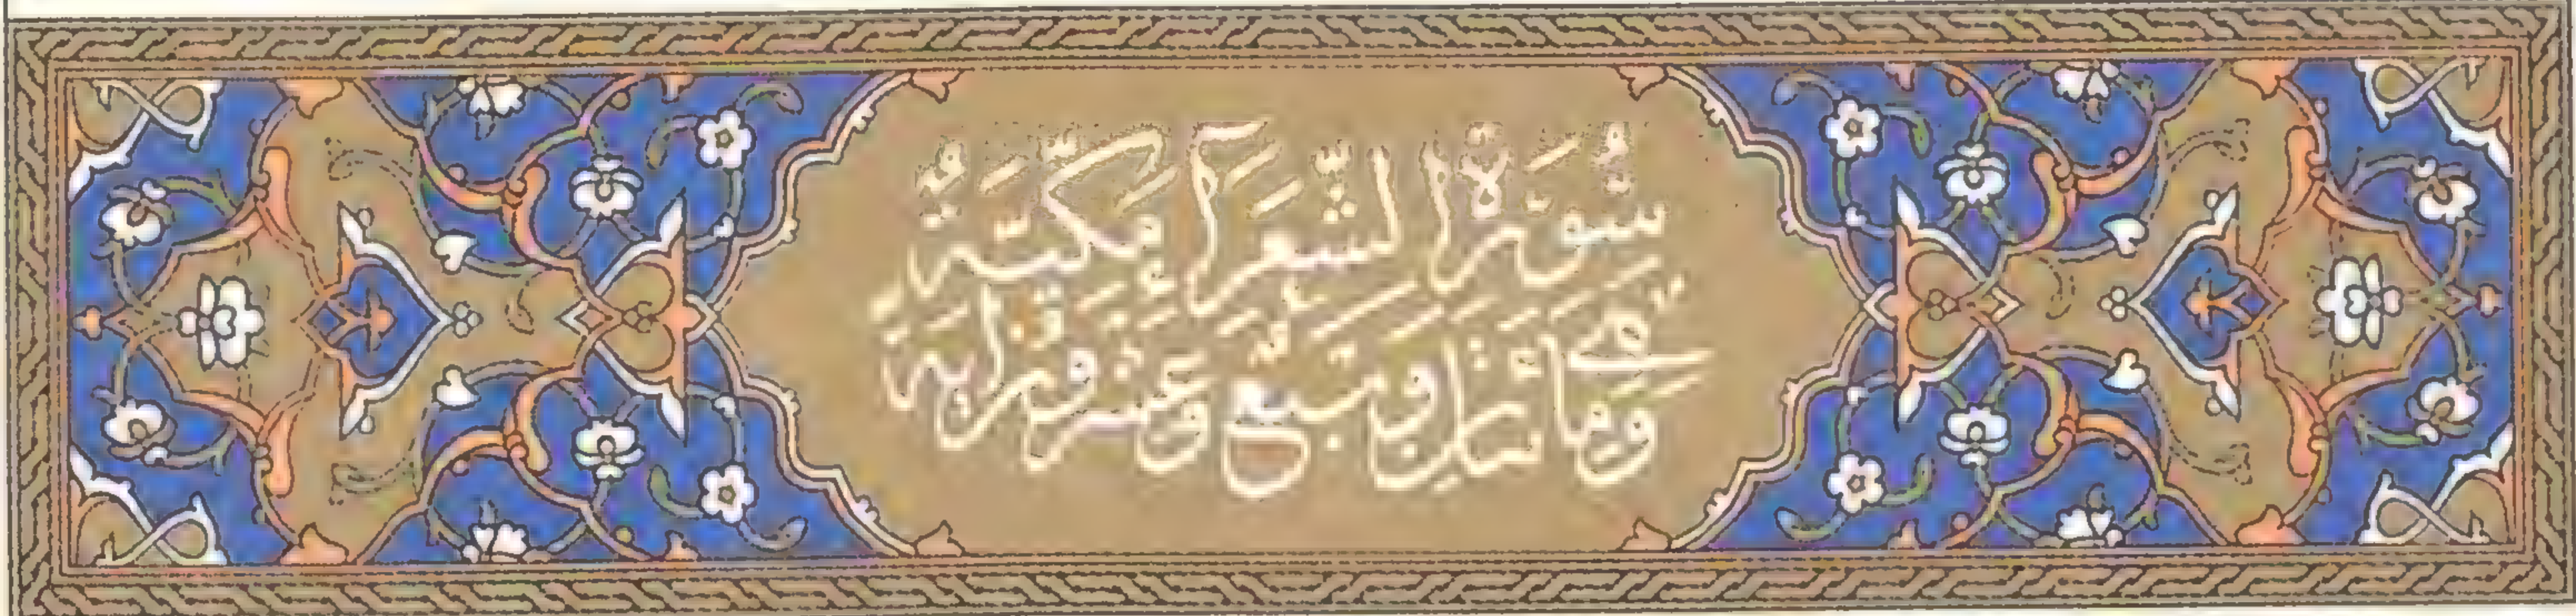 سُورَةُ الشُّعَرَاءِ مَكِّيَّةٌ
وَهِيَ مِائَتَانِ وَسَبْعٌ وَعِشْرُونَ اٰيَةً